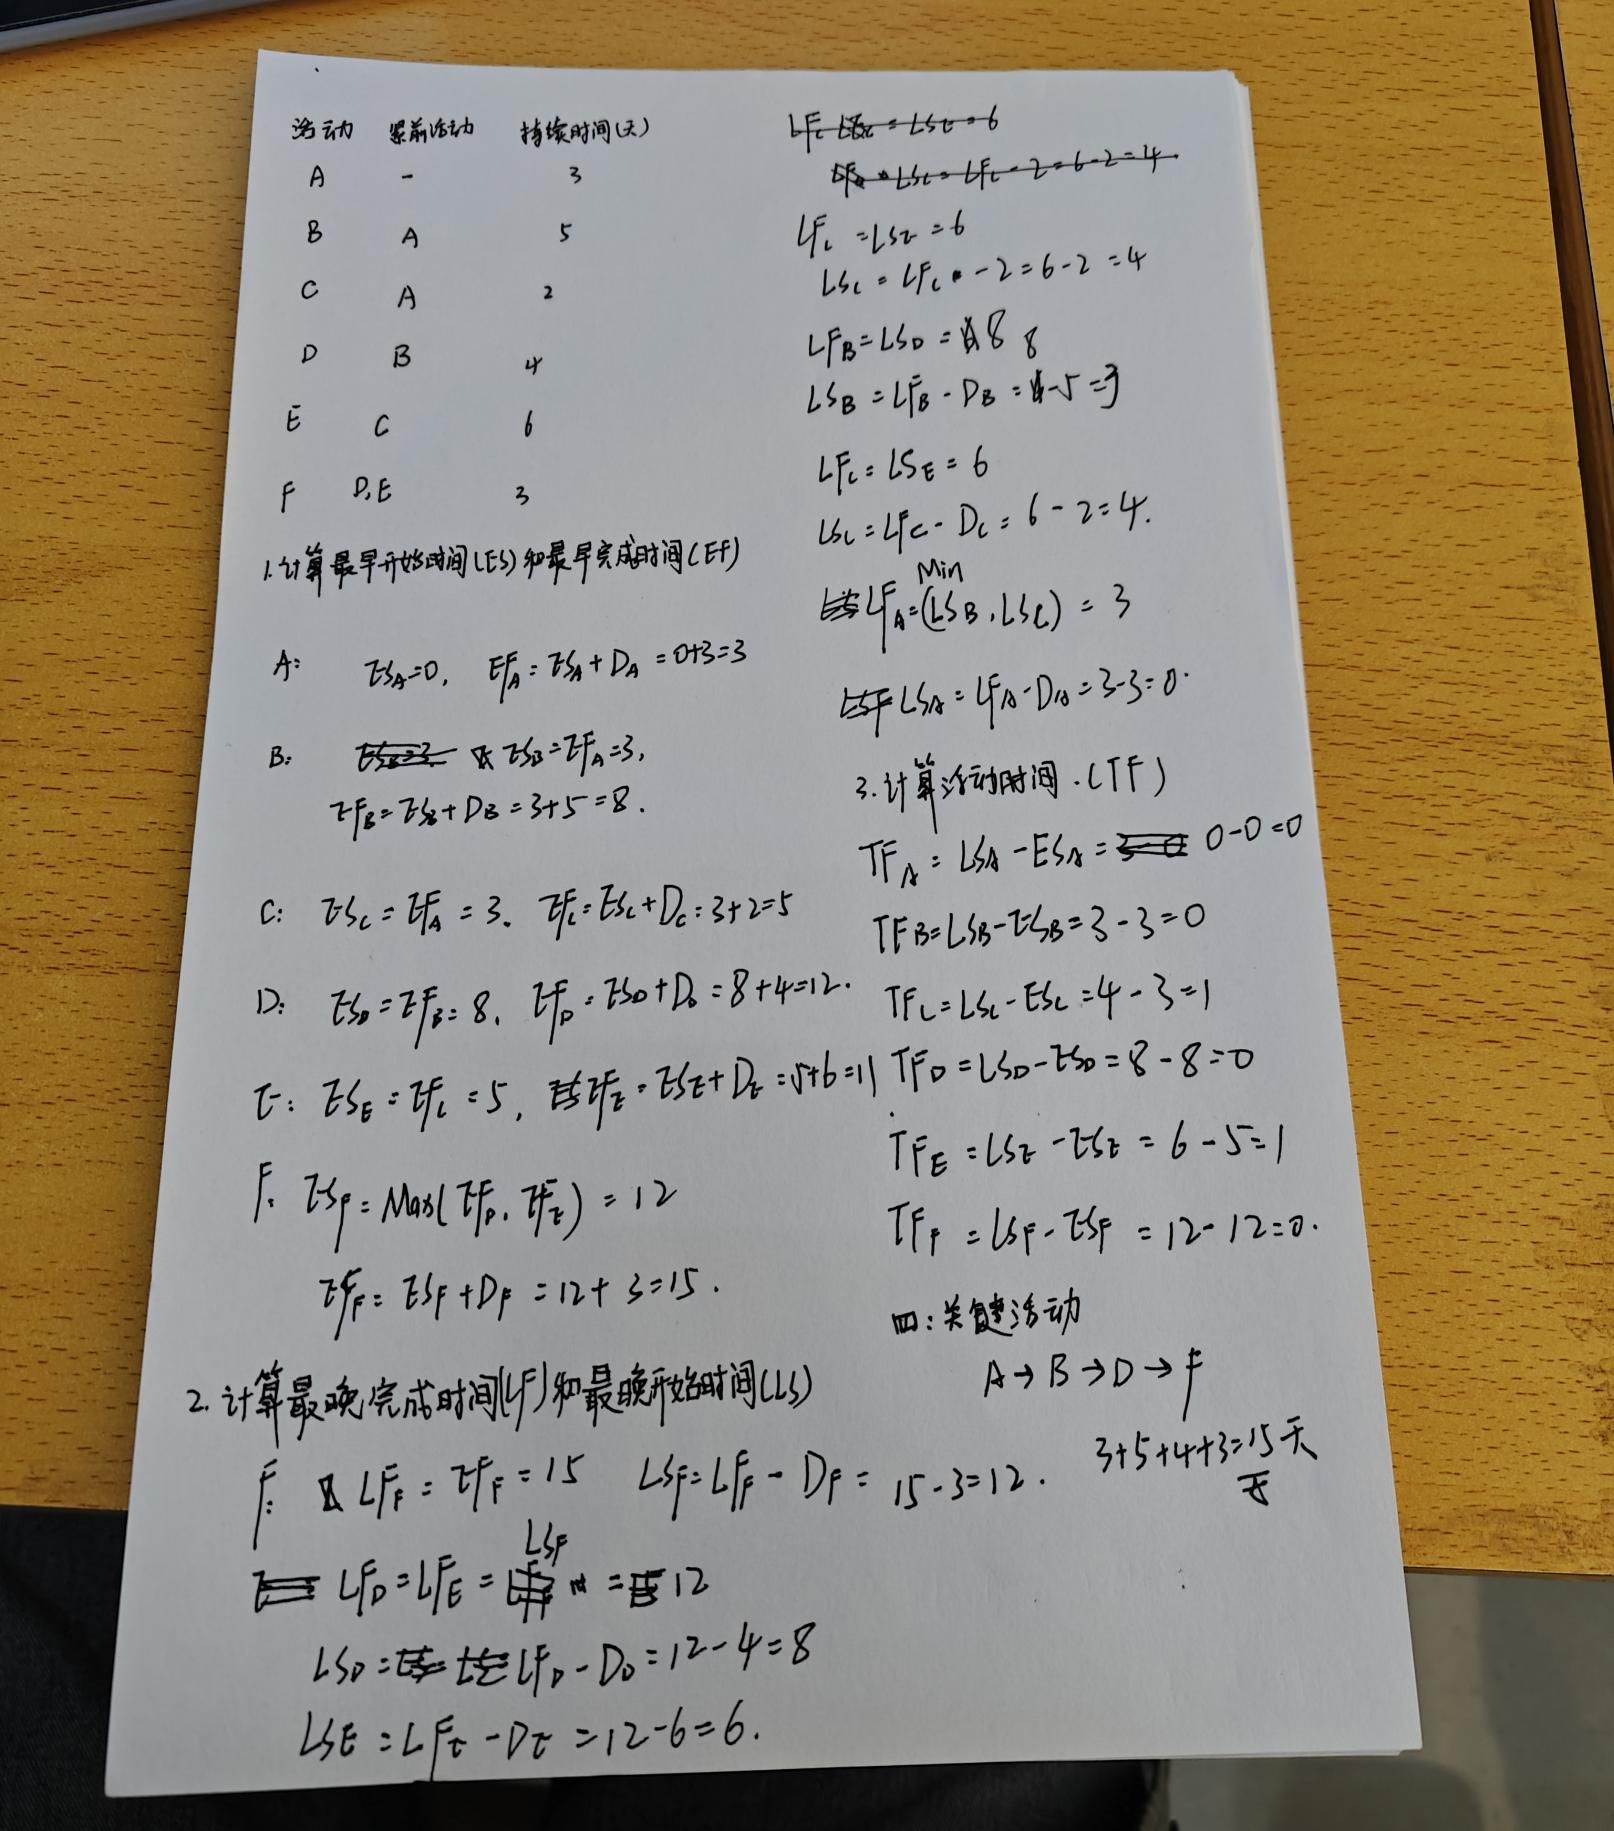 活动 紧前活动 持续时间(天)
A - 3
B A 5
C A 2
D B 4
E C 6
F D,E 3
1.计算最早开始时间(ES)和最早完成时间(EF)
A: ES_A=0, EF_A=ES_A+D_A=0+3=3
B: ES_B=EF_A=3,
EF_B=ES_B+D_B=3+5=8.
C: ES_C=EF_A=3. EF_C=ES_C+D_C=3+2=5
D: ES_D=EF_B=8, EF_D=ES_D+D_D=8+4=12.
E: ES_E=EF_C=5, EF_E=ES_E+D_E=5+6=11
F: ES_F=Max(EF_D,EF_E)=12
EF_F=ES_F+D_F=12+3=15.
2.计算最晚完成时间(LF)和最晚开始时间(LS)
F: LF_F=EF_F=15 LS_F=LF_F-D_F=15-3=12.
LF_D=LF_E=LS_F=12
LS_D=LF_D-D_D=12-4=8
LS_E=LF_E-D_E=12-6=6.
LF_C=LS_E=6
LS_C=LF_C-2=6-2=4
LF_C=LS_E=6
LS_C=LF_C-2=6-2=4
LF_B=LS_D=8 8
LS_B=LF_B-D_B=-5=3
LF_C=LS_E=6
LS_C=LF_C-D_C=6-2=4.
LF_A=Min(LS_B,LS_C)=3
LS_A=LF_A-D_A=3-3=0.
3.计算活动时间.(TF)
TF_A=LS_A-ES_A=0-0=0
TF_B=LS_B-ES_B=3-3=0
TF_C=LS_C-ES_C=4-3=1
TF_D=LS_D-ES_D=8-8=0
TF_E=LS_E-ES_E=6-5=1
TF_F=LS_F-ES_F=12-12=0.
四:关键活动
A→B→D→F
3+5+4+3=15天